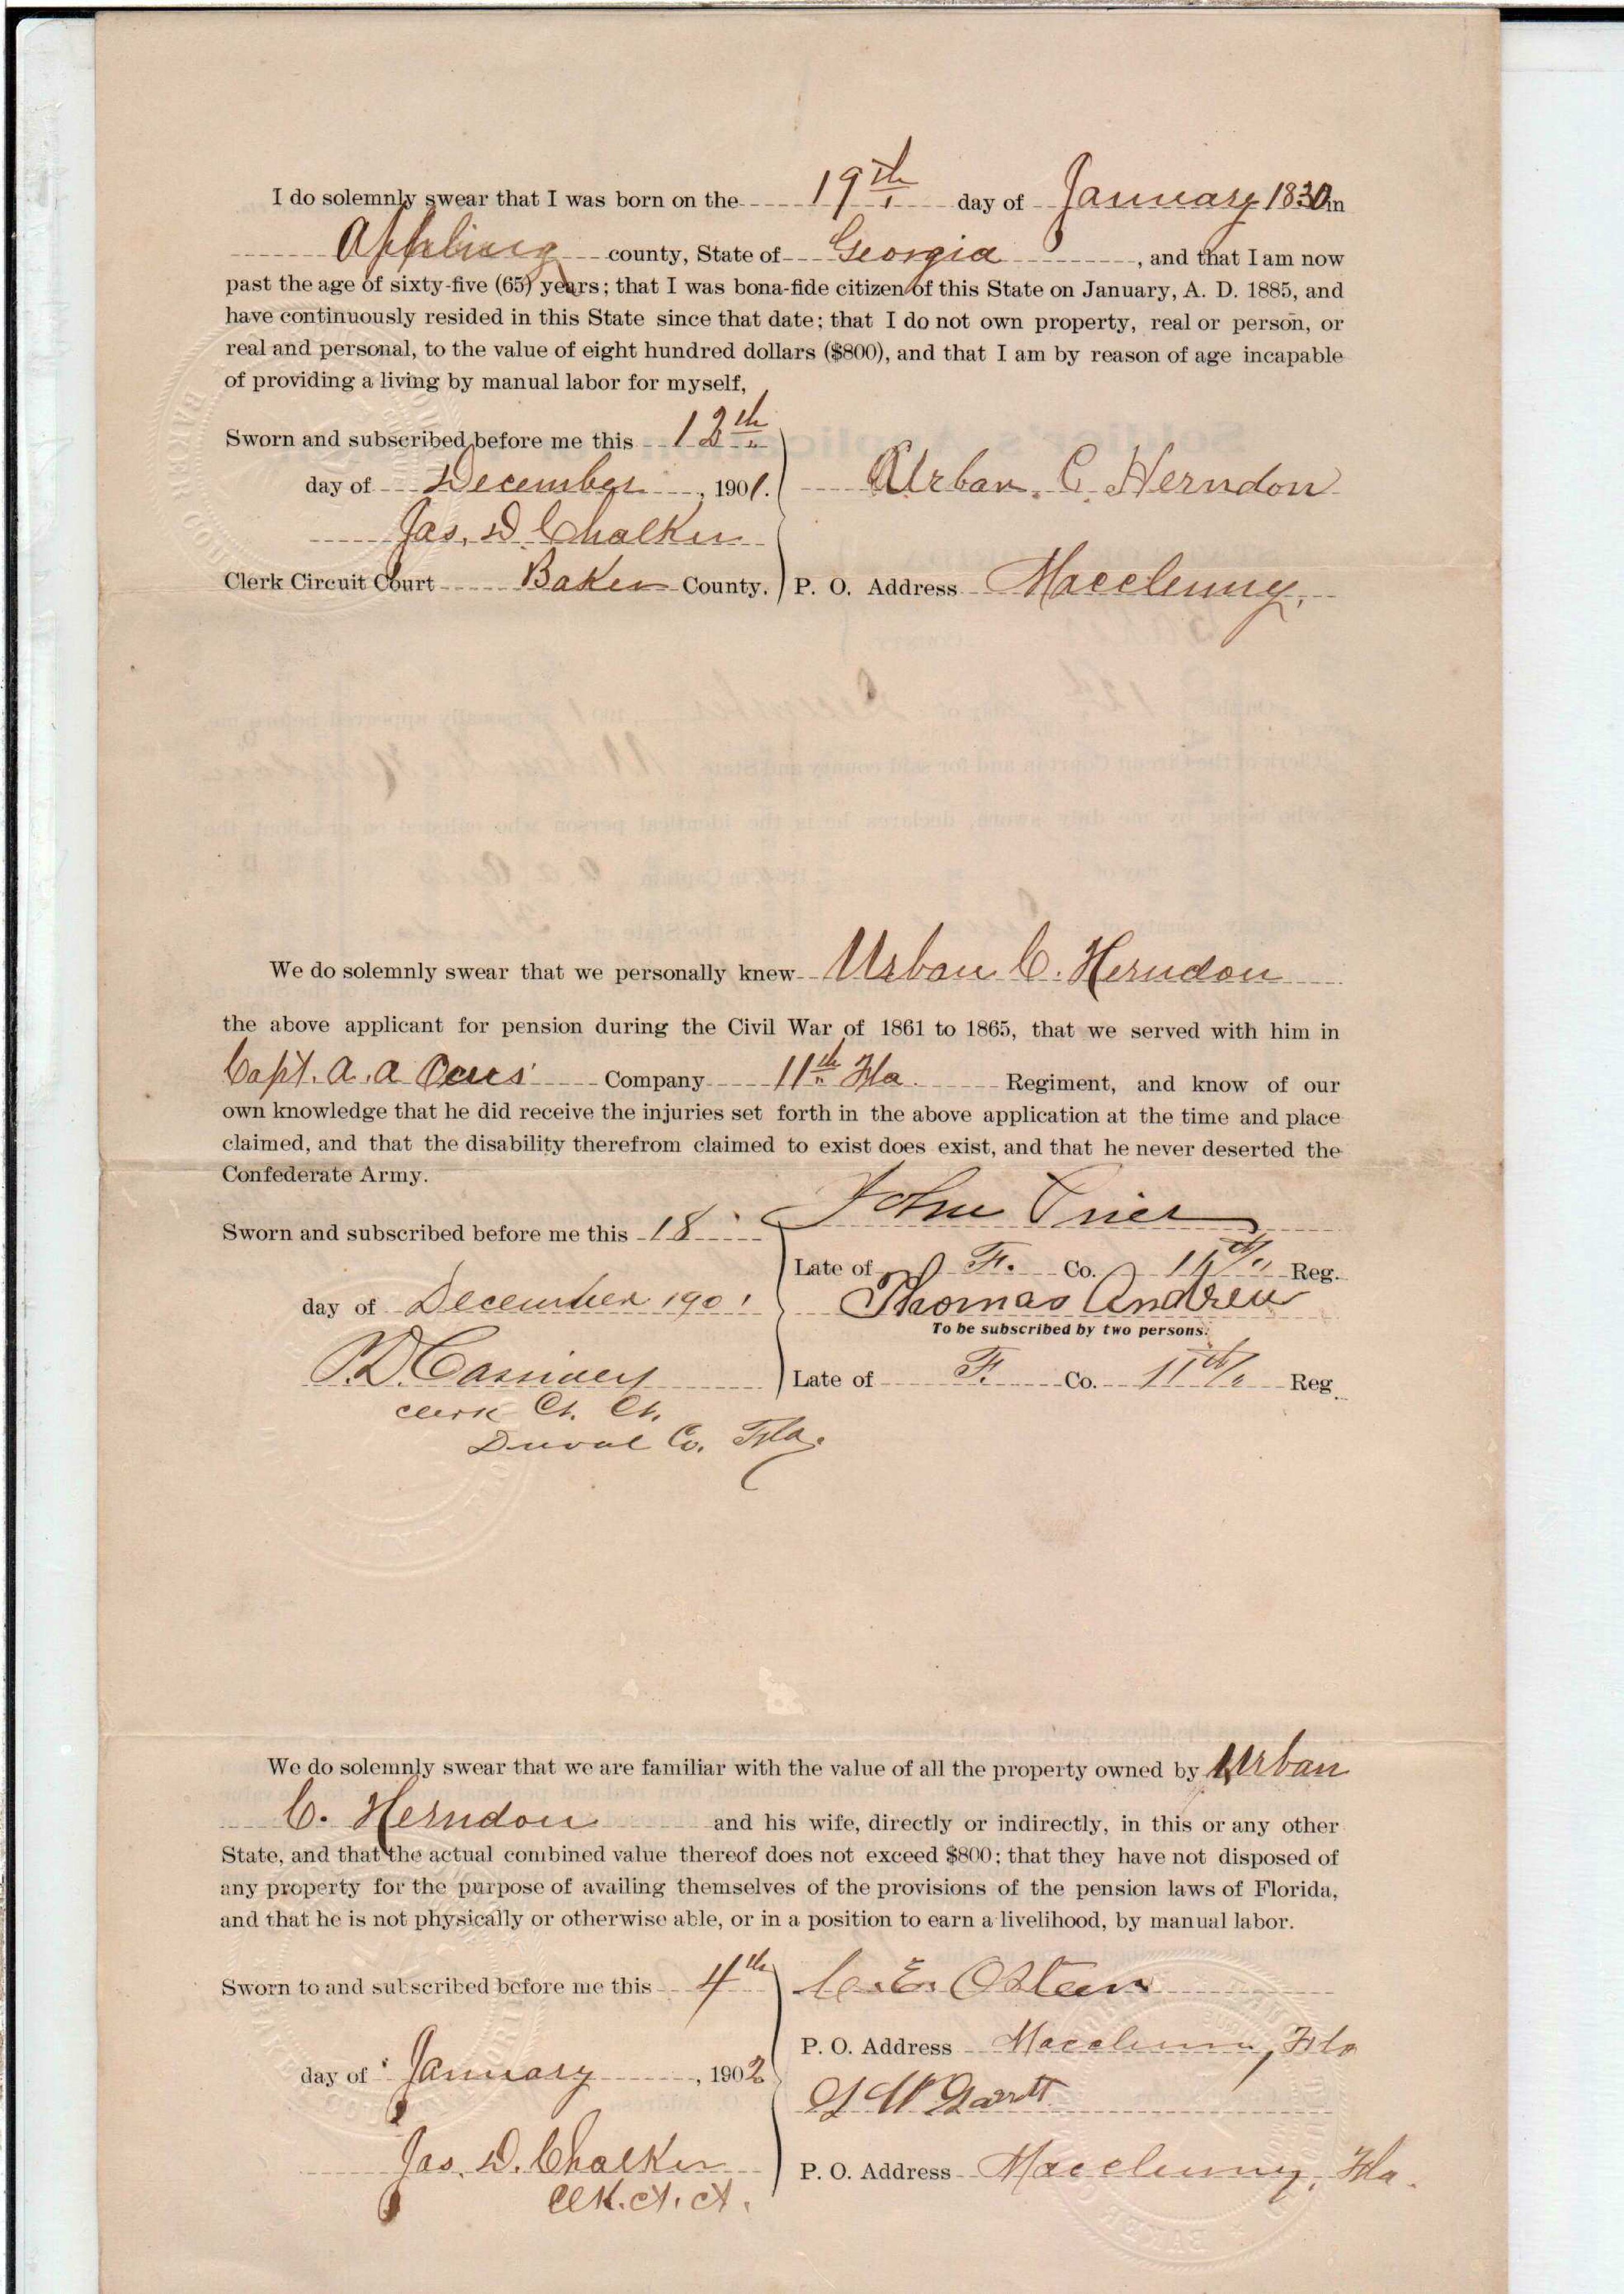 I do solemnly swear that I was born on the 19th day of January 1830 in
Appling county, State of Georgia, and that I am now
past the age of sixty-five (65) years; that I was bona-fide citizen of this State on January, A. D. 1885, and
have continuously resided in this State since that date; that I do not own property, real or person, or
real and personal, to the value of eight hundred dollars ($800), and that I am by reason of age incapable
of providing a living by manual labor for myself,
Sworn and subscribed before me this 12th
day of December, 1901. Urban. C. Herndon
Jas. D. Chalker
Clerk Circuit Court Baker County. P. O. Address Macclenny.
We do solemnly swear that we personally knew Urban C. Herndon
the above applicant for pension during the Civil War of 1861 to 1865, that we served with him in
Capt. A. A Company 11th Fla. Regiment, and know of our
own knowledge that he did receive the injuries set forth in the above application at the time and place
claimed, and that the disability therefrom claimed to exist does exist, and that he never deserted the
Confederate Army.
John
Sworn and subscribed before me this 18
Late of F. Co. 11th Reg.
day of December 1901 Thomas Andreu
To be subscribed by two persons.
P.D. Late of F. Co. 11th Reg.
Clerk Ct. Ct.
Duval Co. Fla.
We do solemnly swear that we are familiar with the value of all the property owned by Urban
C. Herndon and his wife, directly or indirectly, in this or any other
State, and that the actual combined value thereof does not exceed $800; that they have not disposed of
any property for the purpose of availing themselves of the provisions of the pension laws of Florida,
and that he is not physically or otherwise able, or in a position to earn a livelihood, by manual labor.
Sworn to and subscribed before me this 4th C. E. Osteen
P. O. Address Macclenny, Fla
day of January, 1902
Jas. D. Chalker P. O. Address Macclenny, Fla.
Clk. Ct. Ct.